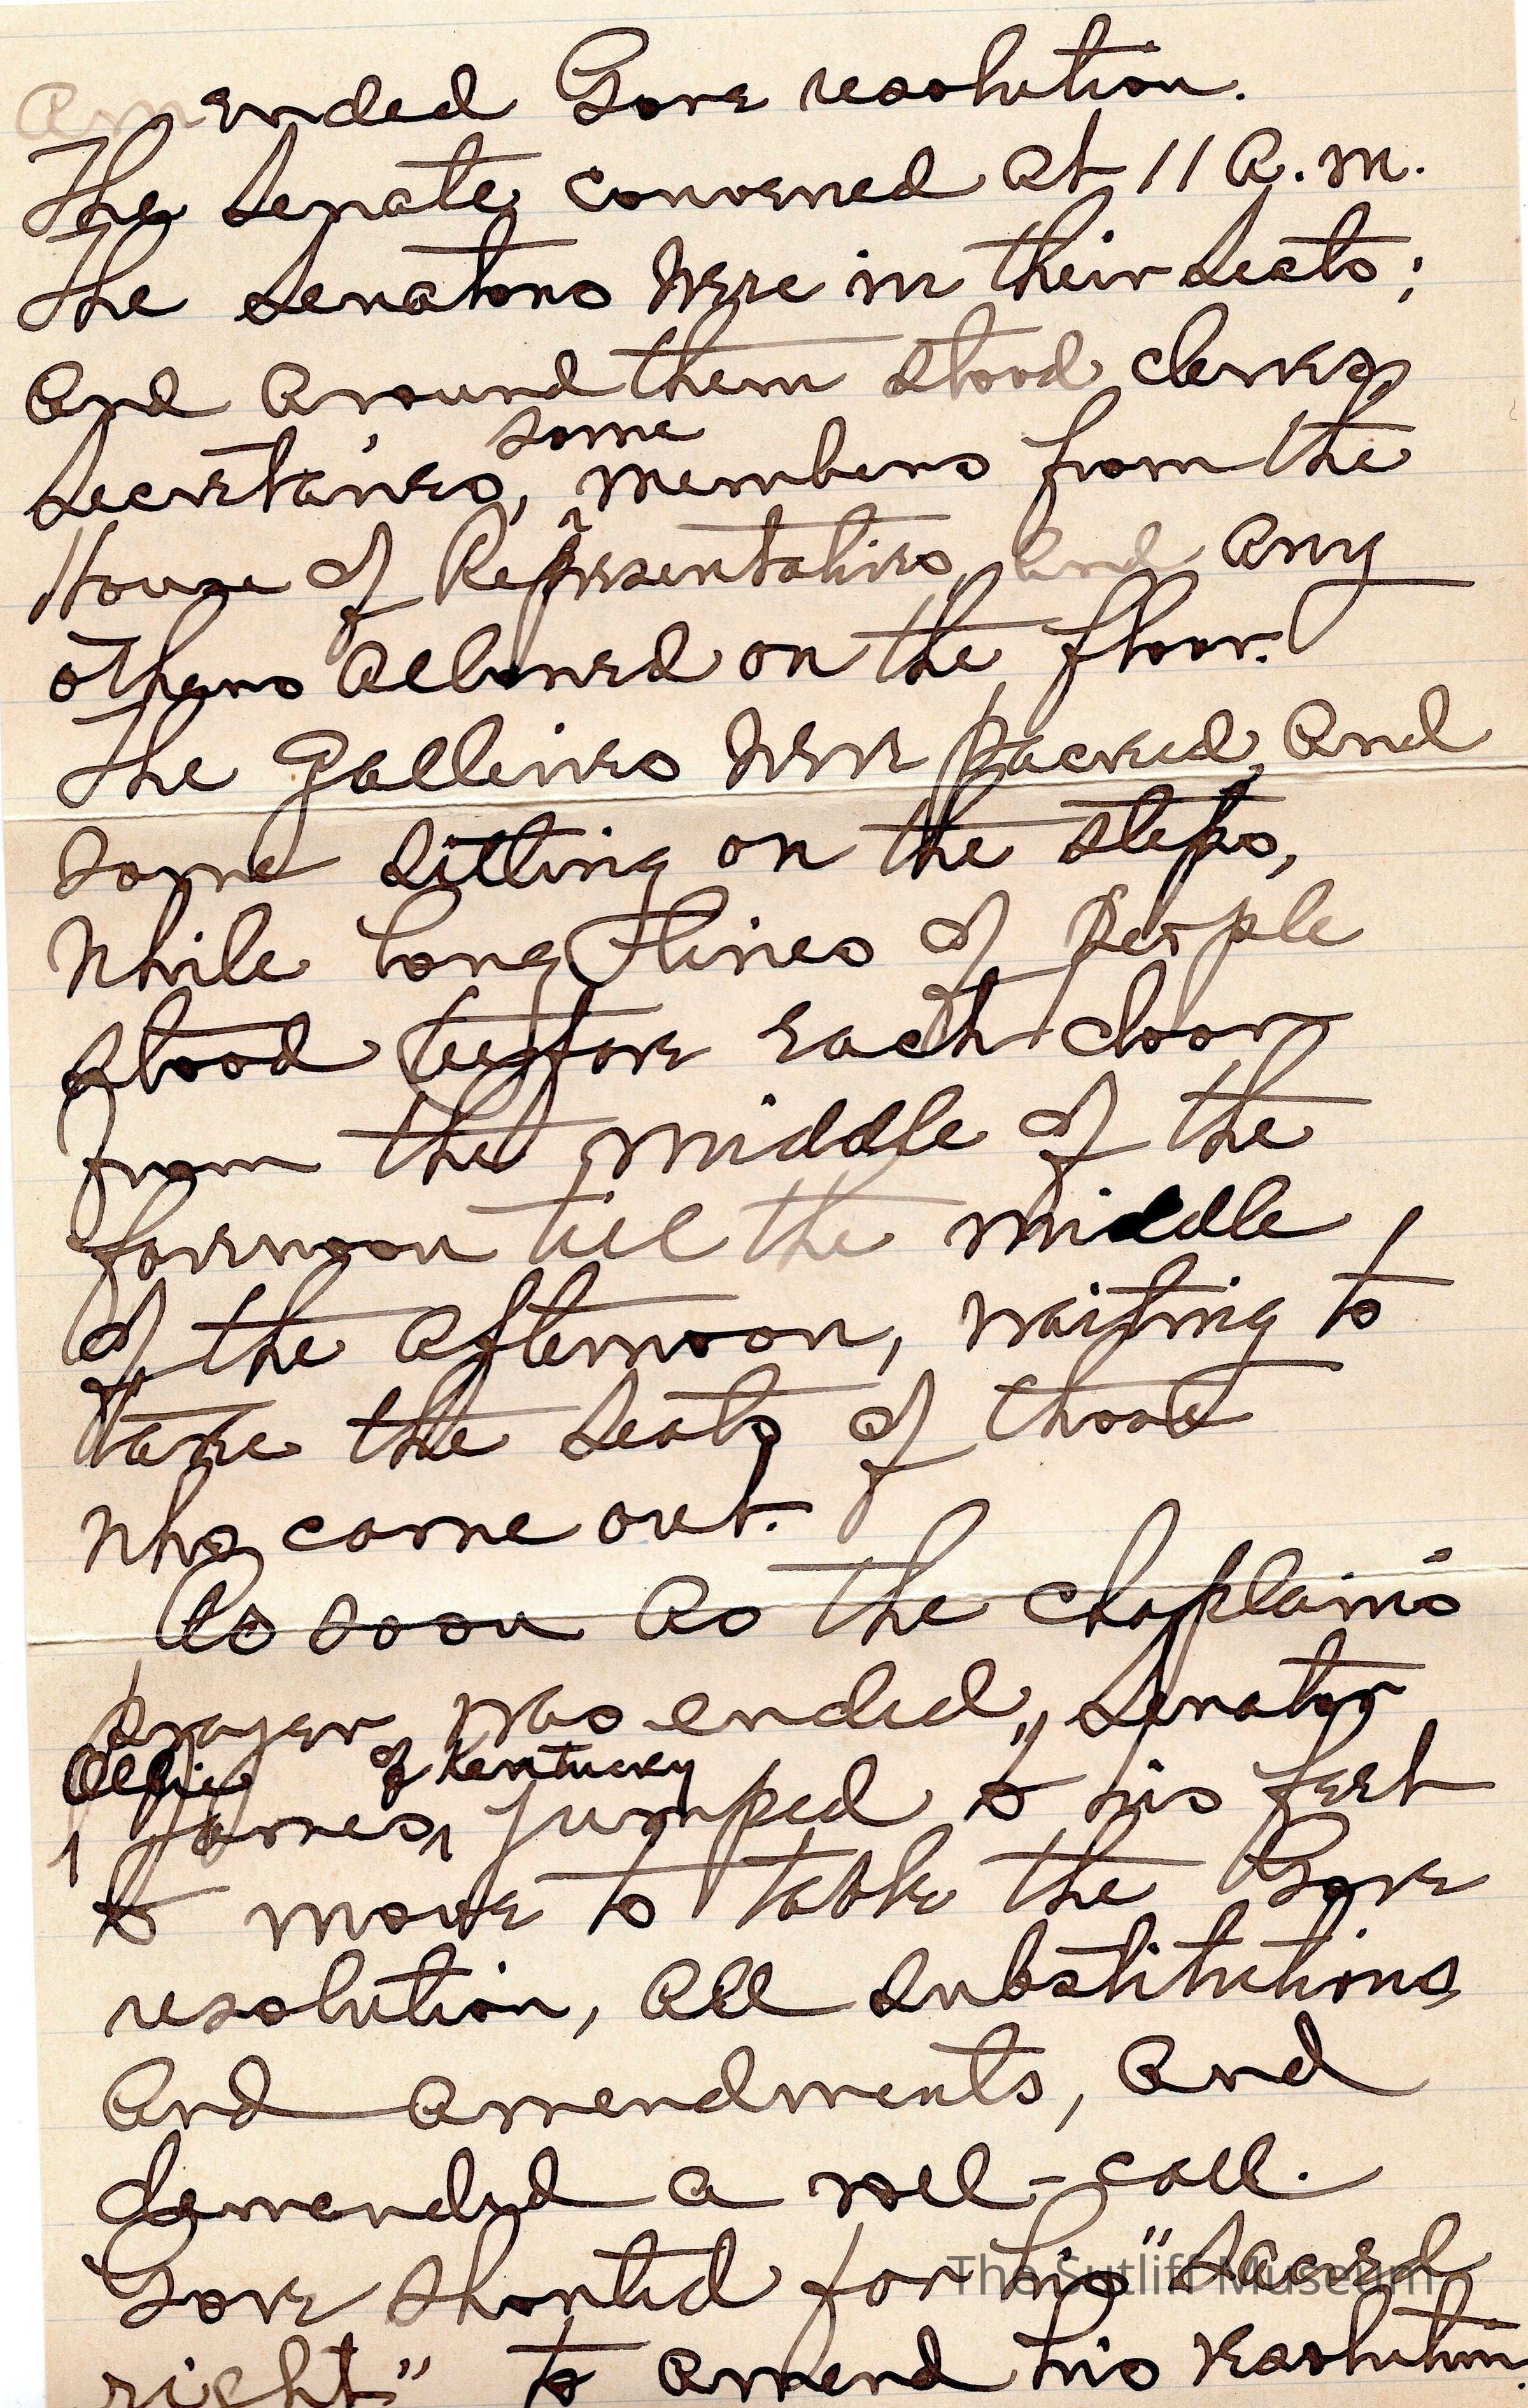 amended Gore resolution.
The Senate convened at 11 A.M.
The Senators were in their seats;
and around them stood clerks,
some
secretaries, members from the
House of Representatives, and any
others allowed on the floor.
The galleries were packed, and
some sitting on the steps,
while long lines of people
stood before each door
from the middle of the
forenoon till the middle
of the afternoon, waiting to
take the seats of those
who came out.
As soon as the chaplain's
prayer was ended, Senator
Ollie of Kentucky
James, jumped to his feet
to move to table the Gore
resolution, all substitutions
and amendments, and
demanded a roll-call.
Gore shouted for his "sacred
The Sutliff Museum
right" to amend his resolution.